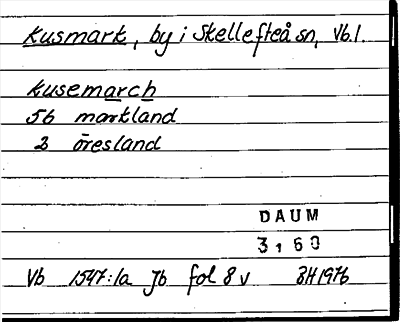 Kusmark, by i Skellefteå sn, Vb.l.
Kusemarch
56 markland
2 öresland
DAUM
3160
Vb 1547:1a Jb fol 8v BH 1976